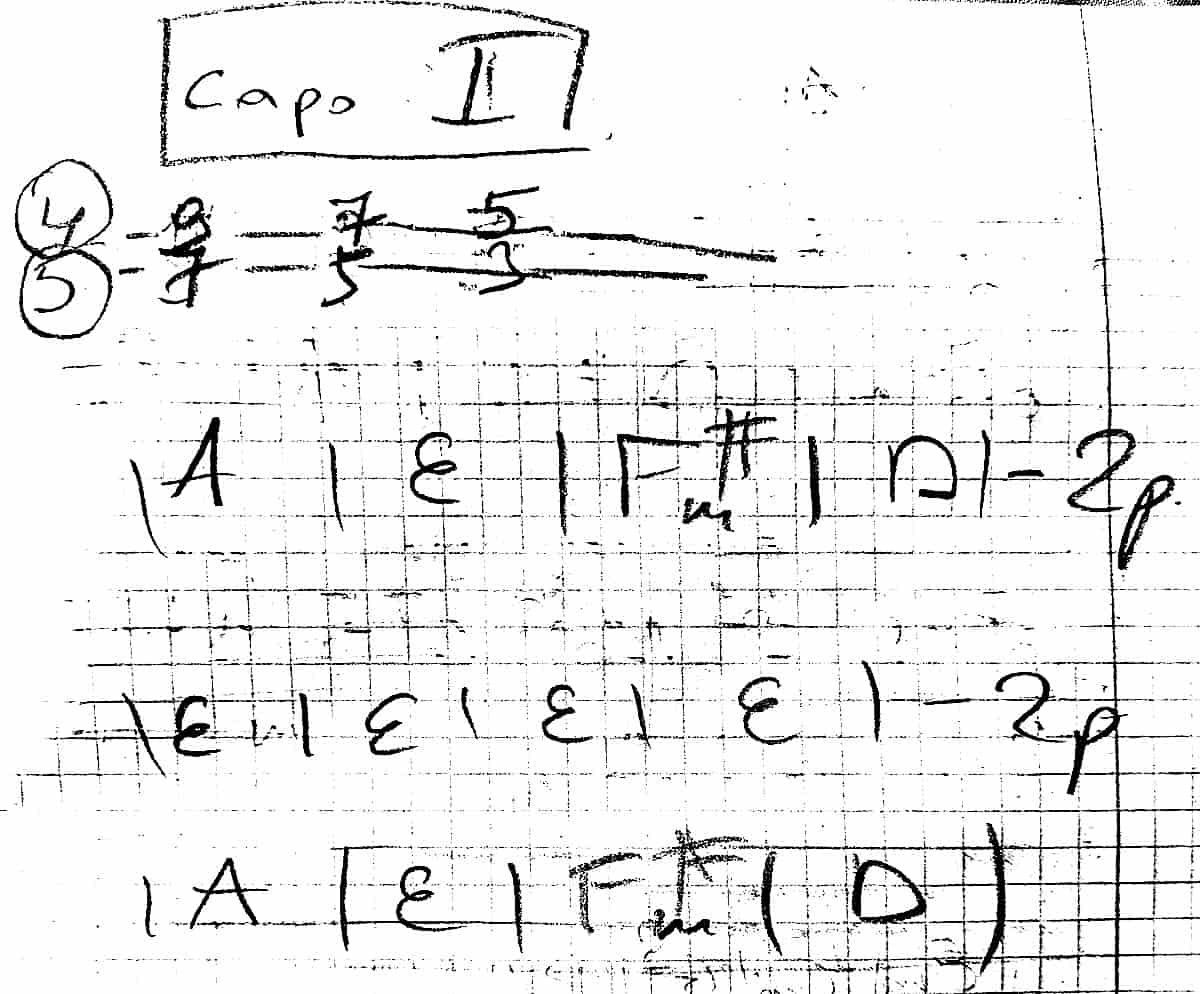 Capo II
4 - 9 - 7 - 5
5 - 7 - 5 - 3
| A | E | F#m | D | - 2p.
| E | E | E | E | - 2p
| A | E | F#m | D |